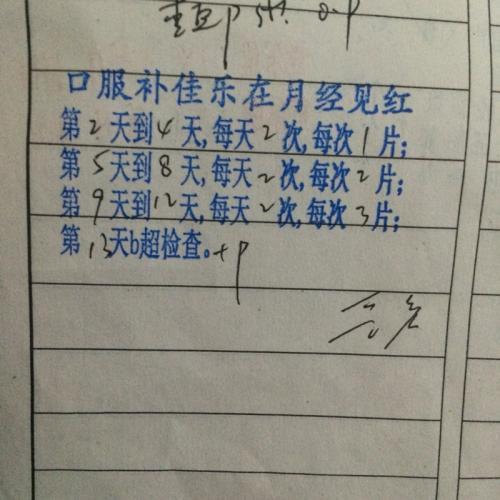 口服补佳乐在月经见红
第2天到4天,每天2次,每次1片;
第5天到8天,每天2次,每次2片;
第9天到12天,每天2次,每次3片;
第13天b超检查。+P